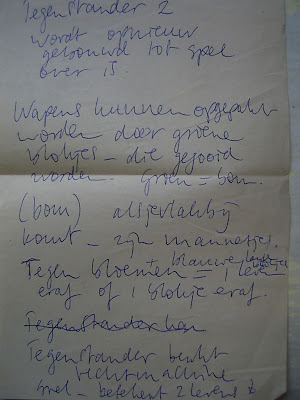 Tegenstander 2
wordt opnieuw
gebouwd tot spel
over is.
Wapens kunnen opgepakt
worden door groene
blokjes - die gegooid
worden. Groen = bom.
(bom) als je vlakbij
komt - zijn mannetjes.
Tegen bloemen + blauwe = 1 leven
eraf of 1 blokje eraf.
Tegenstander
Tegenstander
vechtmachine
spel - betekent 2 levens